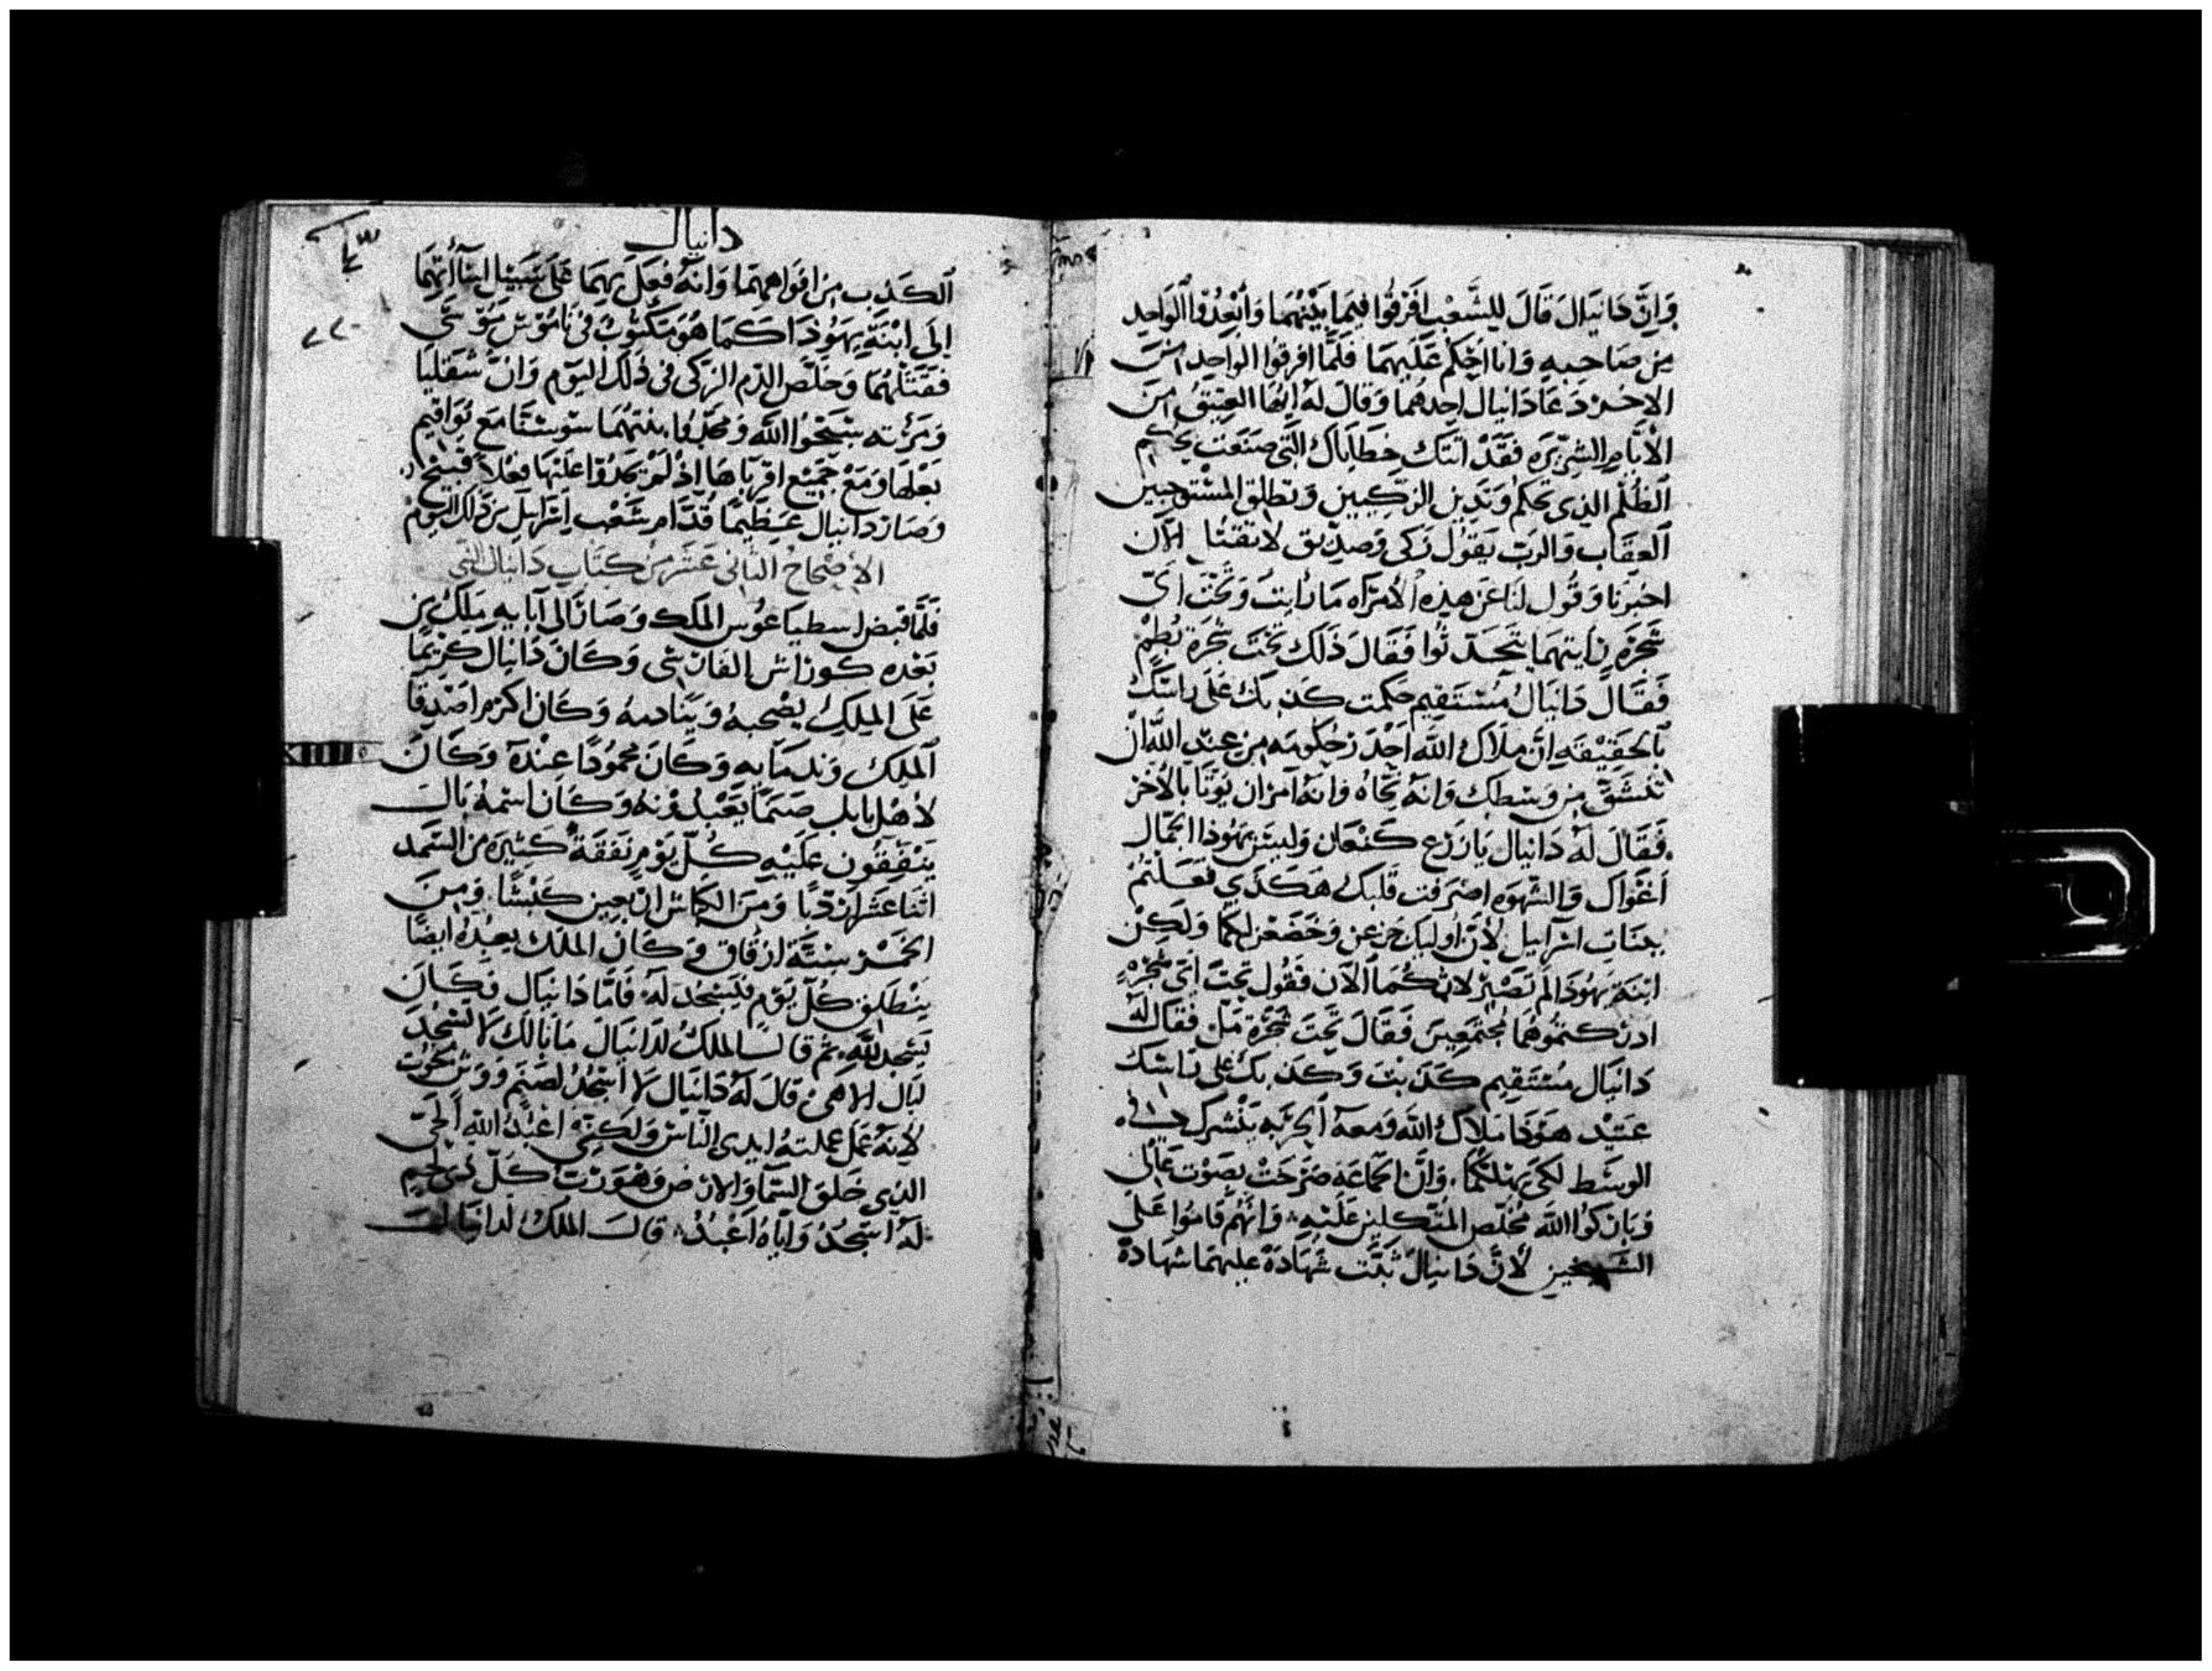 وَاِنَّ دَانيَال قَالَ لِلشَّعْب افَرْقُوا فِيمَا بَيْنَهُمَا وَأبْعِدُوا الوَاحِد
مِن صَاحبِهِ وَانا احْكم عَلَيهمَا فَلَمَّا افرقوا الواحِد من
الاخر دَعَا دَانيال احدهُمَا وَقالَ لهُ ايُّهَا العتِيقُ من
الأيَّام الشرِّيرَه فقَدْ اتتك خطاياك التَّى صنَعت بحكم
الظُلم الذِى تحكم وَتَدين الزكِيين وَتطلق المسْتوجبين
العِقَاب وَالربّ يَقول زكى وَصدِيق لاتقتل الآن
اخبرنا وَقُول لنا عَن هذِه الأمرَاه مَا رَايتَ وَتَحْتَ اىّ
شَجَرَه رَايتهمَا يتَحَدثوا فَقَالَ ذَلك تحْتَ شجَرَة بُطْم
فَقَال دَانيَالُ مُسْتَقِيم حكمت كذبك عَلَى راسَك
بالحقِيْقه انَّ ملاك الله اخذ حكومته من عند الله ان
تنشَقّ من وَسْطك وَانه نجَّاهُ وَانهُ امر ان يُوتَا بالأخر
فَقَالَ لهُ دَانيال يَازَرْع كنْعَان وَليسَ يَهُوذا الجمَال
اغْوَاك وَالشهْوه اصْرَفت قَلبك هَكذى فعَلتُمْ
ببنَات اسْرَاييل لأن اوليك جزعن وَخضَعْن لكما وَلكِنْ
ابْنَة يَهُودَا لم تَصْبر لاثمكُمَا الآن فَقُول تَحت اىّ شجرَةٍ
ادركتمُوهُما مُجتَمِعِينَ فَقَالَ تحت شجرَة مَلّ فقال لهُ
دَانيَال مُسْتَقِيم كَذبتَ وَكذبك على رَاسك
عَتيْد هوَذا مَلاك الله وَمعهُ الحرْبه ينْشرك من
الوسَط لكى يهْلككما وَانَّ الجماعَه صَرخَتْ بصَوْت عَالى
وَبَاركوا الله مُخلّص المتّكلين عَليْهِ وَانهُم قامُوا عَلَى
الشيخين لأنّ دَانيال ثَبّت شَهَادَة عليهمَا شهَادة
دانيال
الكَذِب مِن افوَاههمَا وَانهُ فعَل بهمَا عَلَى سَبِيْل اسَاأتهِمَا
اِلى ابْنَة يَهُوذَا كمَا هُوَ مكتوبٌ فى نَامُوسْ مُوسَى
فقتَلهُمَا وَخلّص الدّم الزكى فى ذَلك اليَوْم وَانَّ شلقيا
وَمَرْته سَبَّحُوا الله وَمجَّدُوا بنتهُمَا سوسَنَّا مَع يُوَاقيم
بَعْلهَا وَمَعْ جَمِيْع اقربَاهَا اِذْ لمْ يَجدُوا عَليْهَا فعْلاً قَبيحًا
وَصَار دَانيال عَظِيْمًا قُدَّام شَعْب اِسْرَايِل مِن ذَلك اليَوْم
الأصْحَاحُ الثانى عَشَر مِن كتَاب دَانيال النبى
فَلَمَّا قبض اسطياغوُس الملك وَصَارَ الى آبَايِهِ مَلك مِن
بَعْده كورَاش الفارسى وَكان دَانيَال كَريمًا
عَلى الملِك يصْحبهُ وَينَادمهُ وَكَان اكرَم اصْدِقا
الملِك وَندمَايهِ وَكان محمُودًا عِنْدهُ وَكانَ
لاهْل بابل صنمًا يعْبدُونهُ وَكان اسْمهُ بَال
يَنْفِقُون عَليْهِ كلّ يَوْم نَفقَةً كثِيرَه من السَّمد
اثْنَا عَشَر اردبًا وَمِنَ الكِباش اربَعِين كَبْشًا وَمِنَ
الخَمْر سِتَّة ازقاق وَكان الملك يعبدهُ ايضًا
يَنْطَلق كُلّ يَوْم فيَسْجُدَ لهُ فَامَّا دَانيَال فكَانَ
يَسْجد لله ثم قال الملكُ لدَانيَالَ مَابَالك لا تَسْجد
لبَال الاهى قالَ لهُ دَانيَال لا اسْجُدُ لصَنم وَوَثن منحوت
لأنهُ عَمل عملتهُ ايدى النَّاس وَلكِنِّى اعْبُدُ الله الحَىّ
الذِى خلق السَّمَا وَالارْض وَهُوَ رَبُّ كُلّ ذى لحم
لهُ اسْجُدُ وَايَّاهُ اعْبُدُ قال الملكُ لدَانيَال